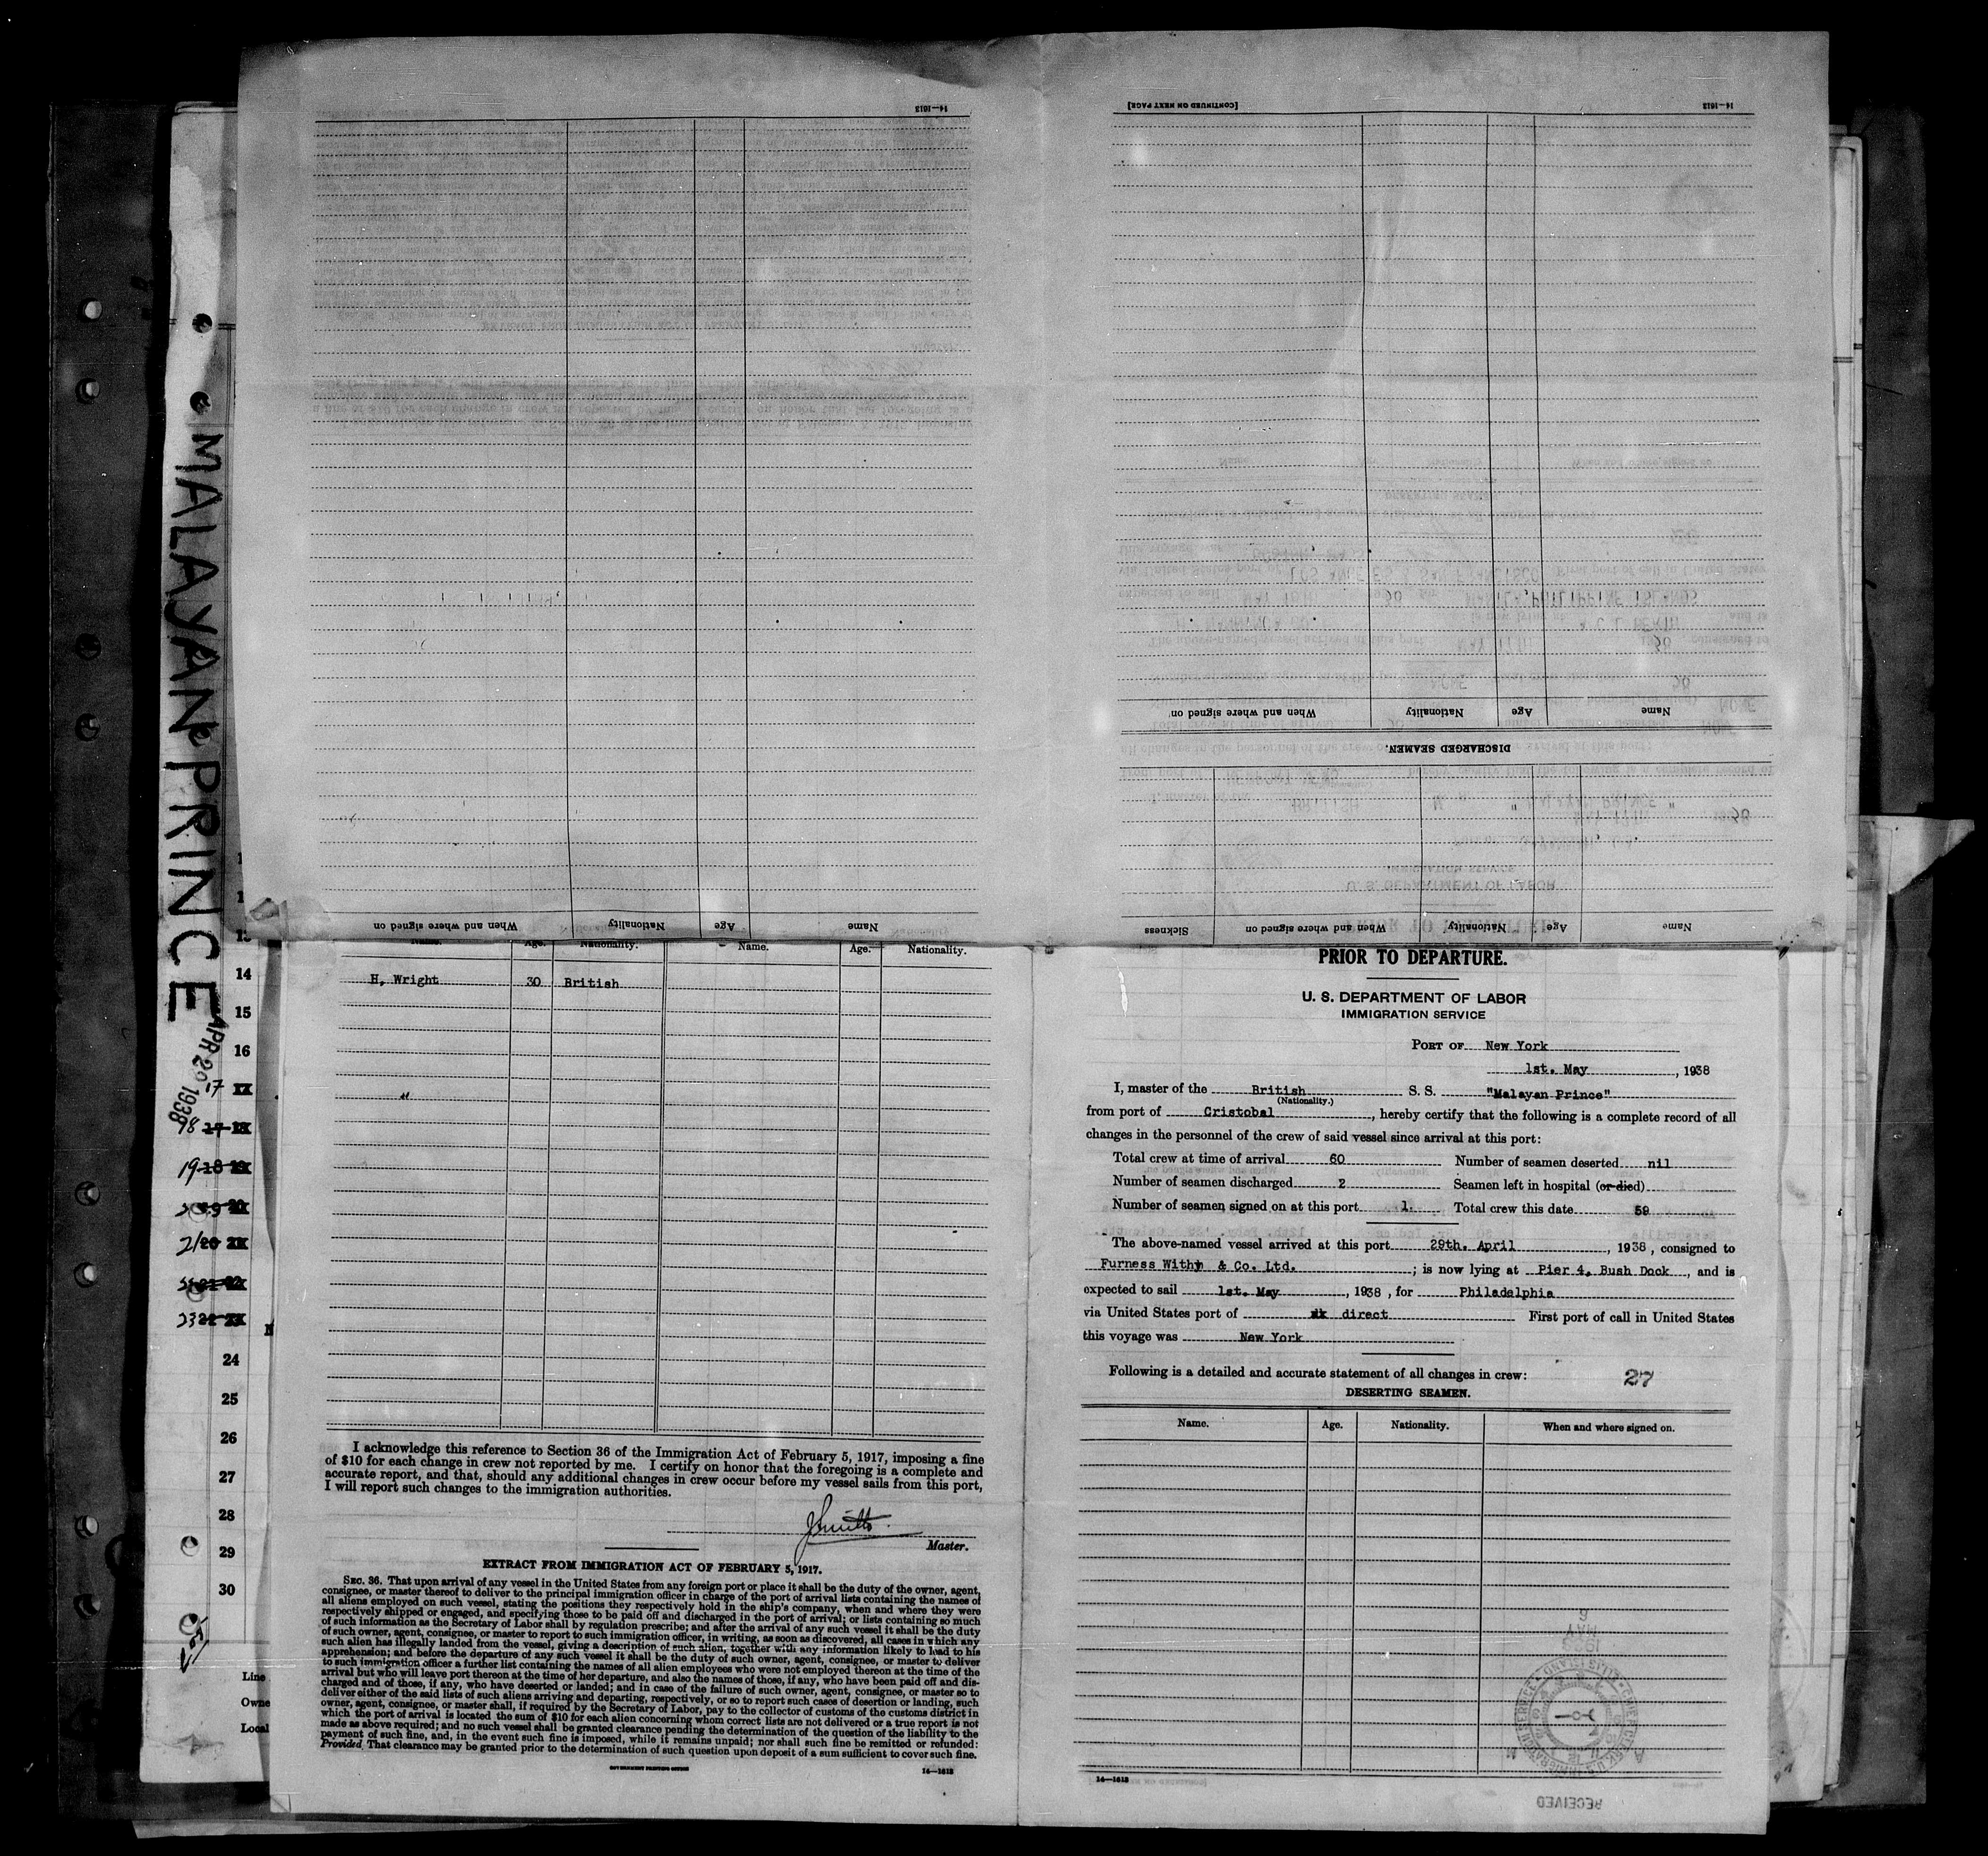 14—1613
[CONTINUED ON NEXT PAGE]
14—1613
When and where signed on
Nationality
Age
Name
DISCHARGED SEAMEN.
Sickness
When and where signed on
Nationality
Age
Name
When and where signed on
Nationality
Age
Name
MALAYAN PRINCE
APR 29 1938
Name. Age. Nationality. Name. Age. Nationality.
H. Wright 30 British
"
14
15
16
17
18
19
20
21
22
23
24
25
26
27
28
29
30
Line
Owne
Local
I acknowledge this reference to Section 36 of the Immigration Act of February 5, 1917, imposing a fine
of $10 for each change in crew not reported by me. I certify on honor that the foregoing is a complete and
accurate report, and that, should any additional changes in crew occur before my vessel sails from this port,
I will report such changes to the immigration authorities.
J Smith
Master.
EXTRACT FROM IMMIGRATION ACT OF FEBRUARY 5, 1917.
SEC. 36. That upon arrival of any vessel in the United States from any foreign port or place it shall be the duty of the owner, agent,
consignee, or master thereof to deliver to the principal immigration officer in charge of the port of arrival lists containing the names of
all aliens employed on such vessel, stating the positions they respectively hold in the ship's company, when and where they were
respectively shipped or engaged, and specifying those to be paid off and discharged in the port of arrival; or lists containing so much
of such information as the Secretary of Labor shall by regulation prescribe; and after the arrival of any such vessel it shall be the duty
of such owner, agent, consignee, or master to report to such immigration officer, in writing, as soon as discovered, all cases in which any
such alien has illegally landed from the vessel, giving a description of such alien, together with any information likely to lead to his
apprehension; and before the departure of any such vessel it shall be the duty of such owner, agent, consignee, or master to deliver
to such immigration officer a further list containing the names of all alien employees who were not employed thereon at the time of the
arrival but who will leave port thereon at the time of her departure, and also the names of those, if any, who have been paid off and dis-
charged and of those, if any, who have deserted or landed; and in case of the failure of such owner, agent, consignee, or master so to
deliver either of the said lists of such aliens arriving and departing, respectively, or so to report such cases of desertion or landing, such
owner, agent, consignee, or master shall, if required by the Secretary of Labor, pay to the collector of customs of the customs district in
which the port of arrival is located the sum of $10 for each alien concerning whom correct lists are not delivered or a true report is not
made as above required; and no such vessel shall be granted clearance pending the determination of the question of the liability to the
payment of such fine, and, in the event such fine is imposed, while it remains unpaid; nor shall such fine be remitted or refunded:
Provided, That clearance may be granted prior to the determination of such question upon deposit of a sum sufficient to cover such fine.
GOVERNMENT PRINTING OFFICE 14—1613
PRIOR TO DEPARTURE.
U. S. DEPARTMENT OF LABOR
IMMIGRATION SERVICE
PORT OF New York
1st. May, 1938
I, master of the British S. S. "Malayan Prince"
(Nationality.)
from port of Cristobal, hereby certify that the following is a complete record of all
changes in the personnel of the crew of said vessel since arrival at this port:
Total crew at time of arrival 60 Number of seamen deserted nil
Number of seamen discharged 2 Seamen left in hospital (or died)
Number of seamen signed on at this port 1. Total crew this date 59
The above-named vessel arrived at this port 29th. April, 1938, consigned to
Furness Withy & Co. Ltd.; is now lying at Pier 4, Bush Dock, and is
expected to sail 1st. May, 1938, for Philadelphia
via United States port of direct First port of call in United States
this voyage was New York
Following is a detailed and accurate statement of all changes in crew: 27
DESERTING SEAMEN.
Name. Age. Nationality. When and where signed on.
14—1613
RECEIVED